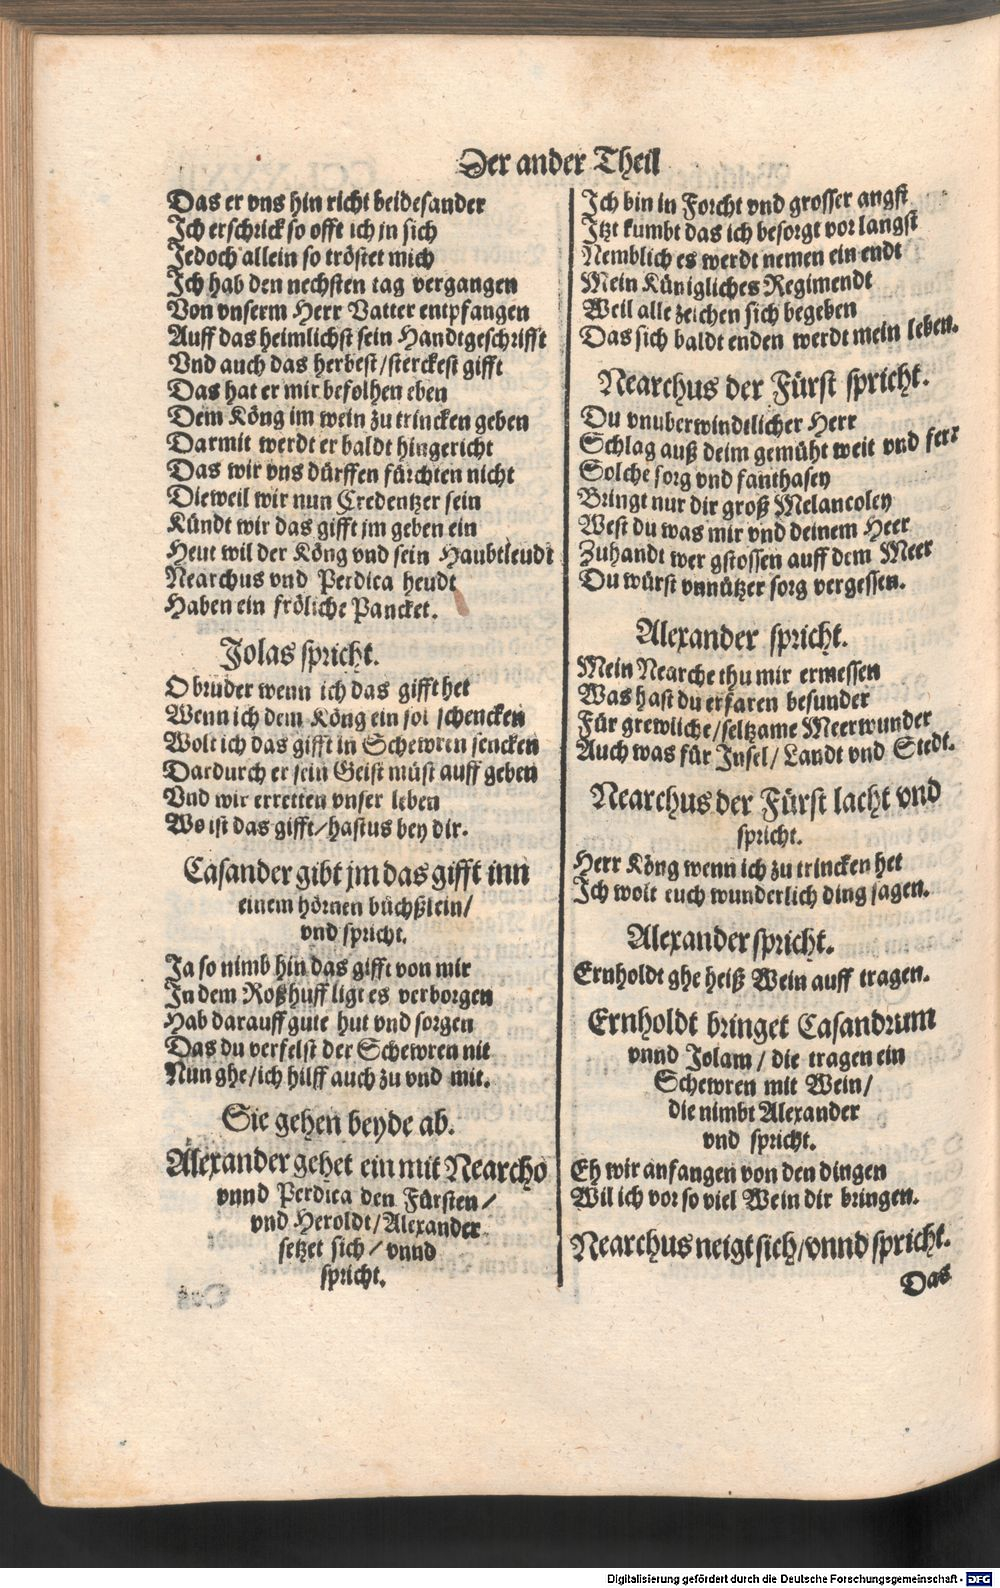 Der ander Theil
Das er vns hin richt beidesander
Ich erschrick so offt ich in sich
Jedoch allein so tröstet mich
Ich hab den nechsten tag vergangen
Von vnserm Herr Vatter entpfangen
Auff das heimlichst sein Handtgeschrifft
Vnd auch das herbest/sterckest gifft
Das hat er mir befolhen eben
Dem Köng im wein zu trincken geben
Darmit werdt er baldt hingericht
Das wir vns dürffen fürchten nicht
Dieweil wir nun Credentzer sein
Kündt wir das gifft jm geben ein
Heut wil der Köng vnd sein Haubtleudt
Nearchus vnd Perdica heudt
Haben ein fröliche Pancket.
Jolas spricht.
O bruder wenn ich das gifft het
Wenn ich dem Köng ein sol schencken
Wolt ich das gifft in Schewren sencken
Dardurch er sein Geist müst auff geben
Vnd wir erretten vnser leben
Wo ist das gifft/hastus bey dir.
Casander gibt jm das gifft inn
einem hörnen büchßlein/
vnd spricht.
Ja so nimb hin das gifft von mir
In dem Roßhuff ligt es verborgen
Hab darauff gute hut vnd sorgen
Das du verfelst der Schewren nit
Nun ghe/ich hilff auch zu vnd mit.
Sie gehen beyde ab.
Alexander gehet ein mit Nearcho
vnnd Perdica den Fürsten/
vnd Heroldt/Alexander
setzet sich/vnnd
spricht.
Ich bin in Forcht vnd grosser angst
Itzt kumbt das ich besorgt vor langst
Nemblich es werdt nemen ein endt
Mein Künigliches Regimendt
Weil alle zeichen sich begeben
Das sich baldt enden werdt mein leben.
Nearchus der Fürst spricht.
Du vnuberwindtlicher Herr
Schlag auß deim gemüht weit vnd ferr
Solche sorg vnd fanthasey
Bringt nur dir groß Melancoley
West du was mir vnd deinem Heer
Zuhandt wer gstossen auff dem Meer
Du würst vnnützer sorg vergessen.
Alexander spricht.
Mein Nearche thu mir ermessen
Was hast du erfaren besunder
Für grewliche/seltzame Meerwunder
Auch was für Insel/Landt vnd Stedt.
Nearchus der Fürst lacht vnd
spricht.
Herr Köng wenn ich zu trincken het
Ich wolt euch wunderlich ding sagen.
Alexander spricht.
Ernholdt ghe heiß Wein auff tragen.
Ernholdt bringet Casandrum
vnnd Jolam/die tragen ein
Schewren mit Wein/
die nimbt Alexander
vnd spricht.
Eh wir anfangen von den dingen
Wil ich vor so viel Wein dir bringen.
Nearchus neigt sich/vnnd spricht.
Das
Digitalisierung gefördert durch die Deutsche Forschungsgemeinschaft - DFG